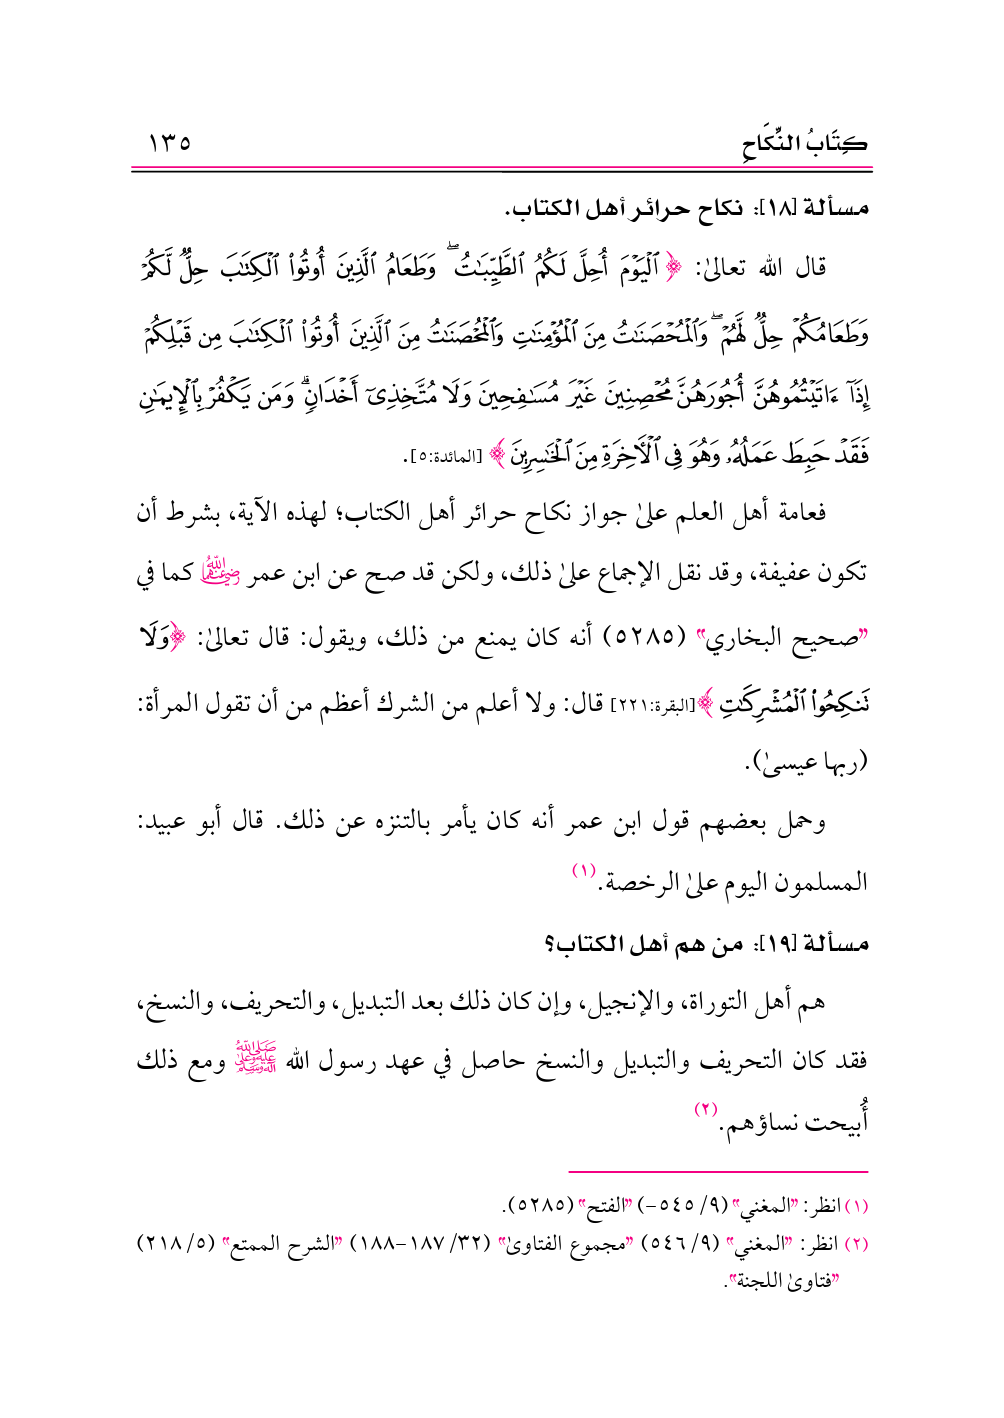 كِتَابُ النِّكَاحِ ١٣٥
مسألة [١٨]: نكاح حرائر أهل الكتاب.
قال الله تعالىٰ: ﴿ٱلْيَوْمَ أُحِلَّ لَكُمُ ٱلطَّيِّبَٰتُ ۖ وَطَعَامُ ٱلَّذِينَ أُوتُوا۟ ٱلْكِتَٰبَ حِلٌّ لَّكُمْ
وَطَعَامُكُمْ حِلٌّ لَّهُمْ ۖ وَٱلْمُحْصَنَٰتُ مِنَ ٱلْمُؤْمِنَٰتِ وَٱلْمُحْصَنَٰتُ مِنَ ٱلَّذِينَ أُوتُوا۟ ٱلْكِتَٰبَ مِن قَبْلِكُمْ
إِذَآ ءَاتَيْتُمُوهُنَّ أُجُورَهُنَّ مُحْصِنِينَ غَيْرَ مُسَٰفِحِينَ وَلَا مُتَّخِذِىٓ أَخْدَانٍ ۗ وَمَن يَكْفُرْ بِٱلْإِيمَٰنِ
فَقَدْ حَبِطَ عَمَلُهُۥ وَهُوَ فِى ٱلْءَاخِرَةِ مِنَ ٱلْخَٰسِرِينَ﴾ [المائدة:٥].
فعامة أهل العلم علىٰ جواز نكاح حرائر أهل الكتاب؛ لهذه الآية، بشرط أن
تكون عفيفة، وقد نقل الإجماع علىٰ ذلك، ولكن قد صح عن ابن عمر رضي الله عنهما كما في
"صحيح البخاري" (٥٢٨٥) أنه كان يمنع من ذلك، ويقول: قال تعالىٰ: ﴿وَلَا
تَنكِحُوا۟ ٱلْمُشْرِكَٰتِ﴾ [البقرة:٢٢١] قال: ولا أعلم من الشرك أعظم من أن تقول المرأة:
(ربها عيسىٰ).
وحمل بعضهم قول ابن عمر أنه كان يأمر بالتنزه عن ذلك. قال أبو عبيد:
المسلمون اليوم علىٰ الرخصة.(١)
مسألة [١٩]: من هم أهل الكتاب؟
هم أهل التوراة، والإنجيل، وإن كان ذلك بعد التبديل، والتحريف، والنسخ،
فقد كان التحريف والتبديل والنسخ حاصل في عهد رسول الله ﷺ ومع ذلك
أُبيحت نساؤهم.(٢)
(١) انظر: "المغني" (٩/ ٥٤٥-) "الفتح" (٥٢٨٥).
(٢) انظر: "المغني" (٩/ ٥٤٦) "مجموع الفتاوىٰ" (٣٢/ ١٨٧-١٨٨) "الشرح الممتع" (٥/ ٢١٨)
"فتاوىٰ اللجنة".